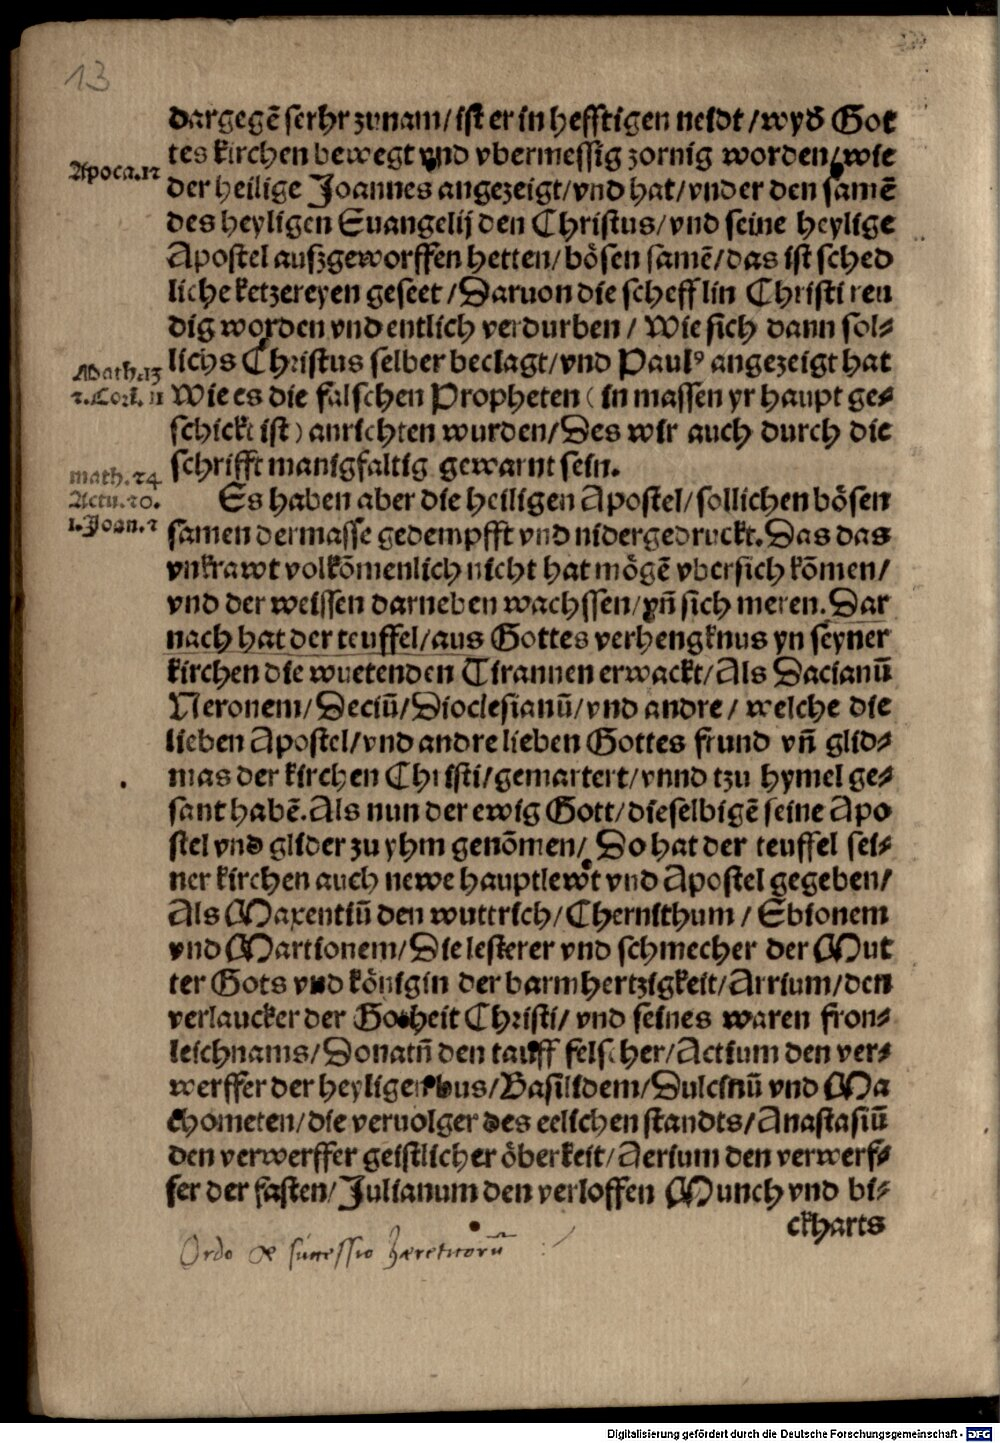 13
dargegē serhr zunam/ist er in hefftigen neidt/wyd Got
tes kirchen bewegt vnd vbermessig zornig worden/wie
Apoca.12
der heilige Joannes angezeigt/vnd hat/vnder den samē
des heyligen Euangelij den Christus/vnd seine heylige
Apostel auſzgeworffen hetten/bösen samē/das ist sched
liche ketzereyen geseet/Daruon die schefflin Christi reu
dig worden vnd entlich verdurben/Wie sich dann sol⸗
Math.13
lichs Christus selber beclagt/vnd Paulꝰ angezeigt hat
2.Cori. 11
Wie es die falschen Propheten (in massen yr haupt ge⸗
schickt ist) anrichten wurden/Des wir auch durch die
schrifft manigfaltig gewarnt sein.
math.24
Es haben aber die heiligen Apostel/sollichen bösen
Actu.20.
samen dermasse gedempfft vnd nidergedruckt.Das das
1.Joan.2
vnkrawt volkōmenlich nicht hat mögē vbersich kōmen/
vnd der weissen darneben wachssen/yn̄ sich meren.Dar
nach hat der teuffel/aus Gottes verhengknus yn seyner
kirchen die wuetenden Tirannen erwackt/Als Dacianū
Neronem/Deciū/Dioclesianū/vnd andre/welche die
lieben Apostel/vnd andre lieben Gottes frund vn̄ glid⸗
mas der kirchen Christi/gemartert/vnnd tzu hymel ge⸗
sant habē.Als nun der ewig Gott/dieselbigē seine Apo
stel vnd glider zu yhm genōmen/So hat der teuffel sei⸗
ner kirchen auch newe hauptlewt vnd Apostel gegeben/
Als Maxentiū den wuttrich/Chernithum/Ebionem
vnd Martionem/Die lesterer vnd schmecher der Mut
ter Gots vnd königin der barmhertzigkeit/Arrium/den
verlaucker der Gotheit Christi/vnd seines waren fron⸗
leichnams/Donatū den tauff felscher/Actium den ver⸗
werffer der heyligen bus/Basilidem/Dulcinū vnd Ma
chometen/die veruolger des eelichen standts/Anastasiū
den verwerffer geistlicher öberkeit/Aerium den verwerf⸗
fer der fasten/Julianum den verloffen Munch vnd bi⸗
ckharts
Ordo & successio haereticorū
Digitalisierung gefördert durch die Deutsche Forschungsgemeinschaft - DFG